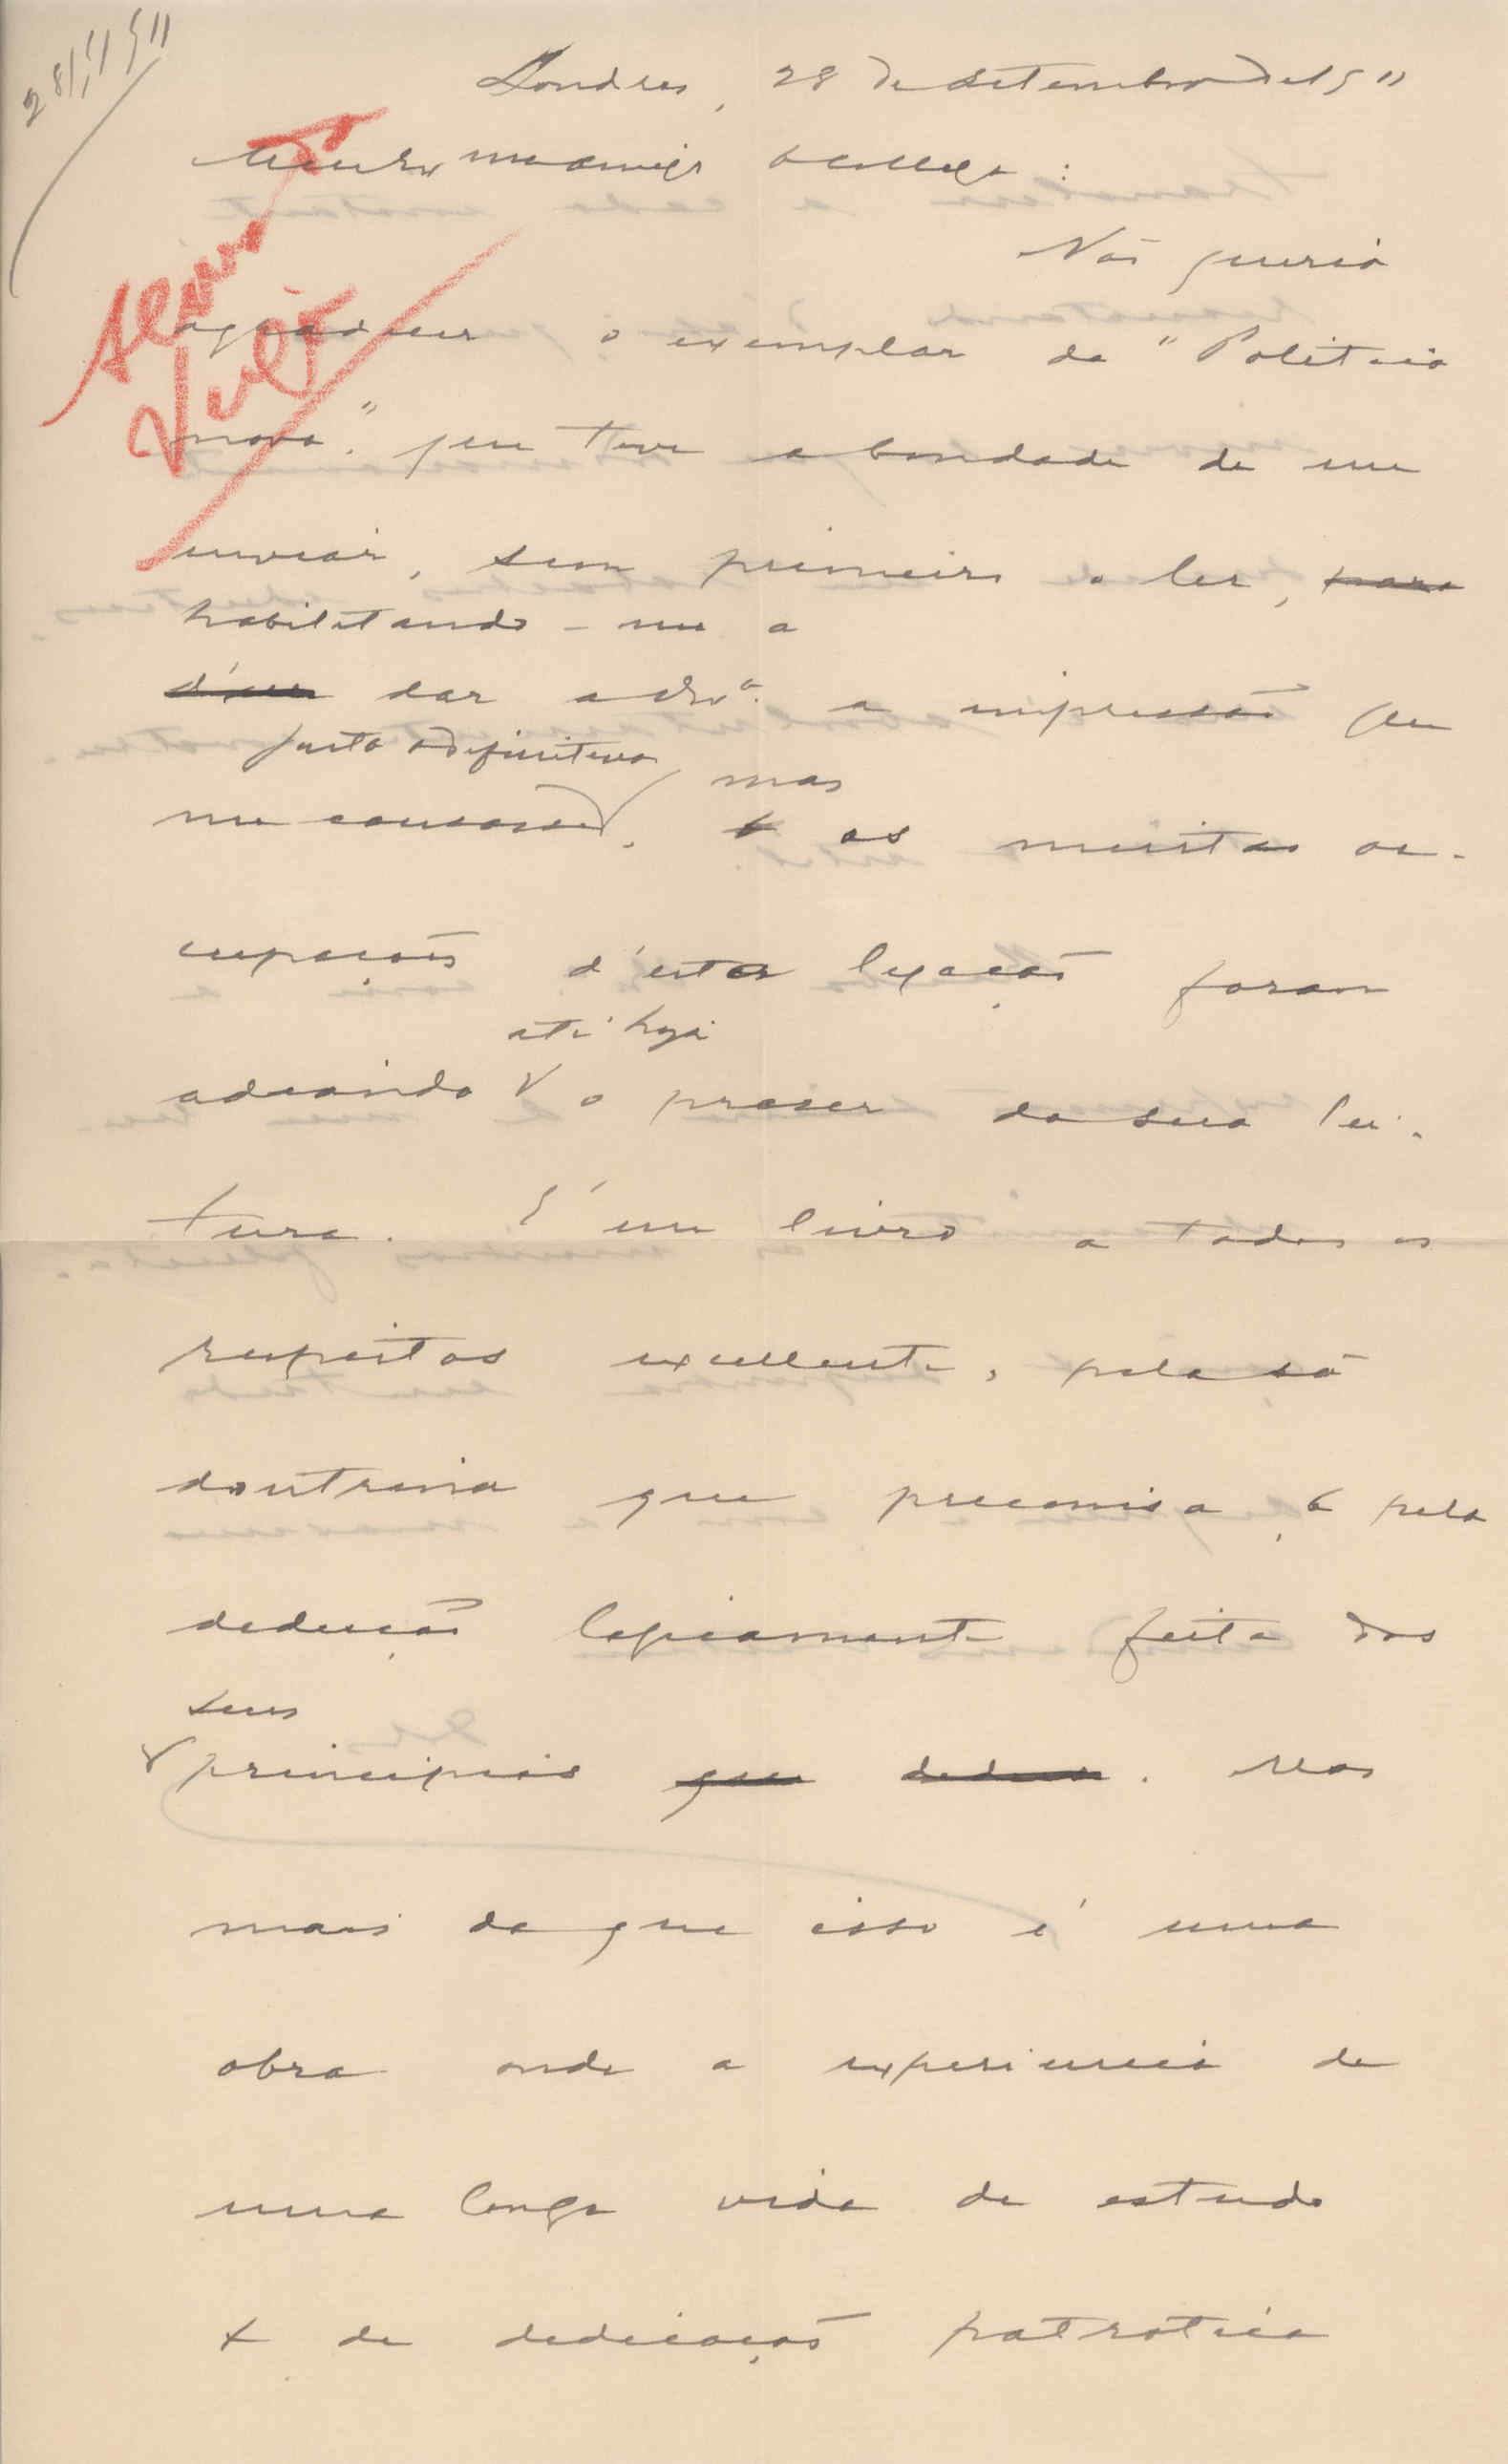 Londres, 28 de setembro de 1911
meu amigo e collega:
Não queria
agradecer o exemplar da "Politica
nova" que teve a bondade de me
enviar, sem primeiro o ler, para
habilitando-me a
dar a impressão que
justa e definitiva, mas
me causasse, e as muitas oc-
cupações d'esta legação foram
até hoje
adeando o praser da sua lei-
tura. É um livro a todos os
respeitos excellente, pela sã
doutrina que preconisa, e pela
deducção logicamente feita dos
seus
principios que deduz. Mas
mais do que isso é uma
obra onde a experiencia de
uma longa vida de estudo
e de dedicação patriotica